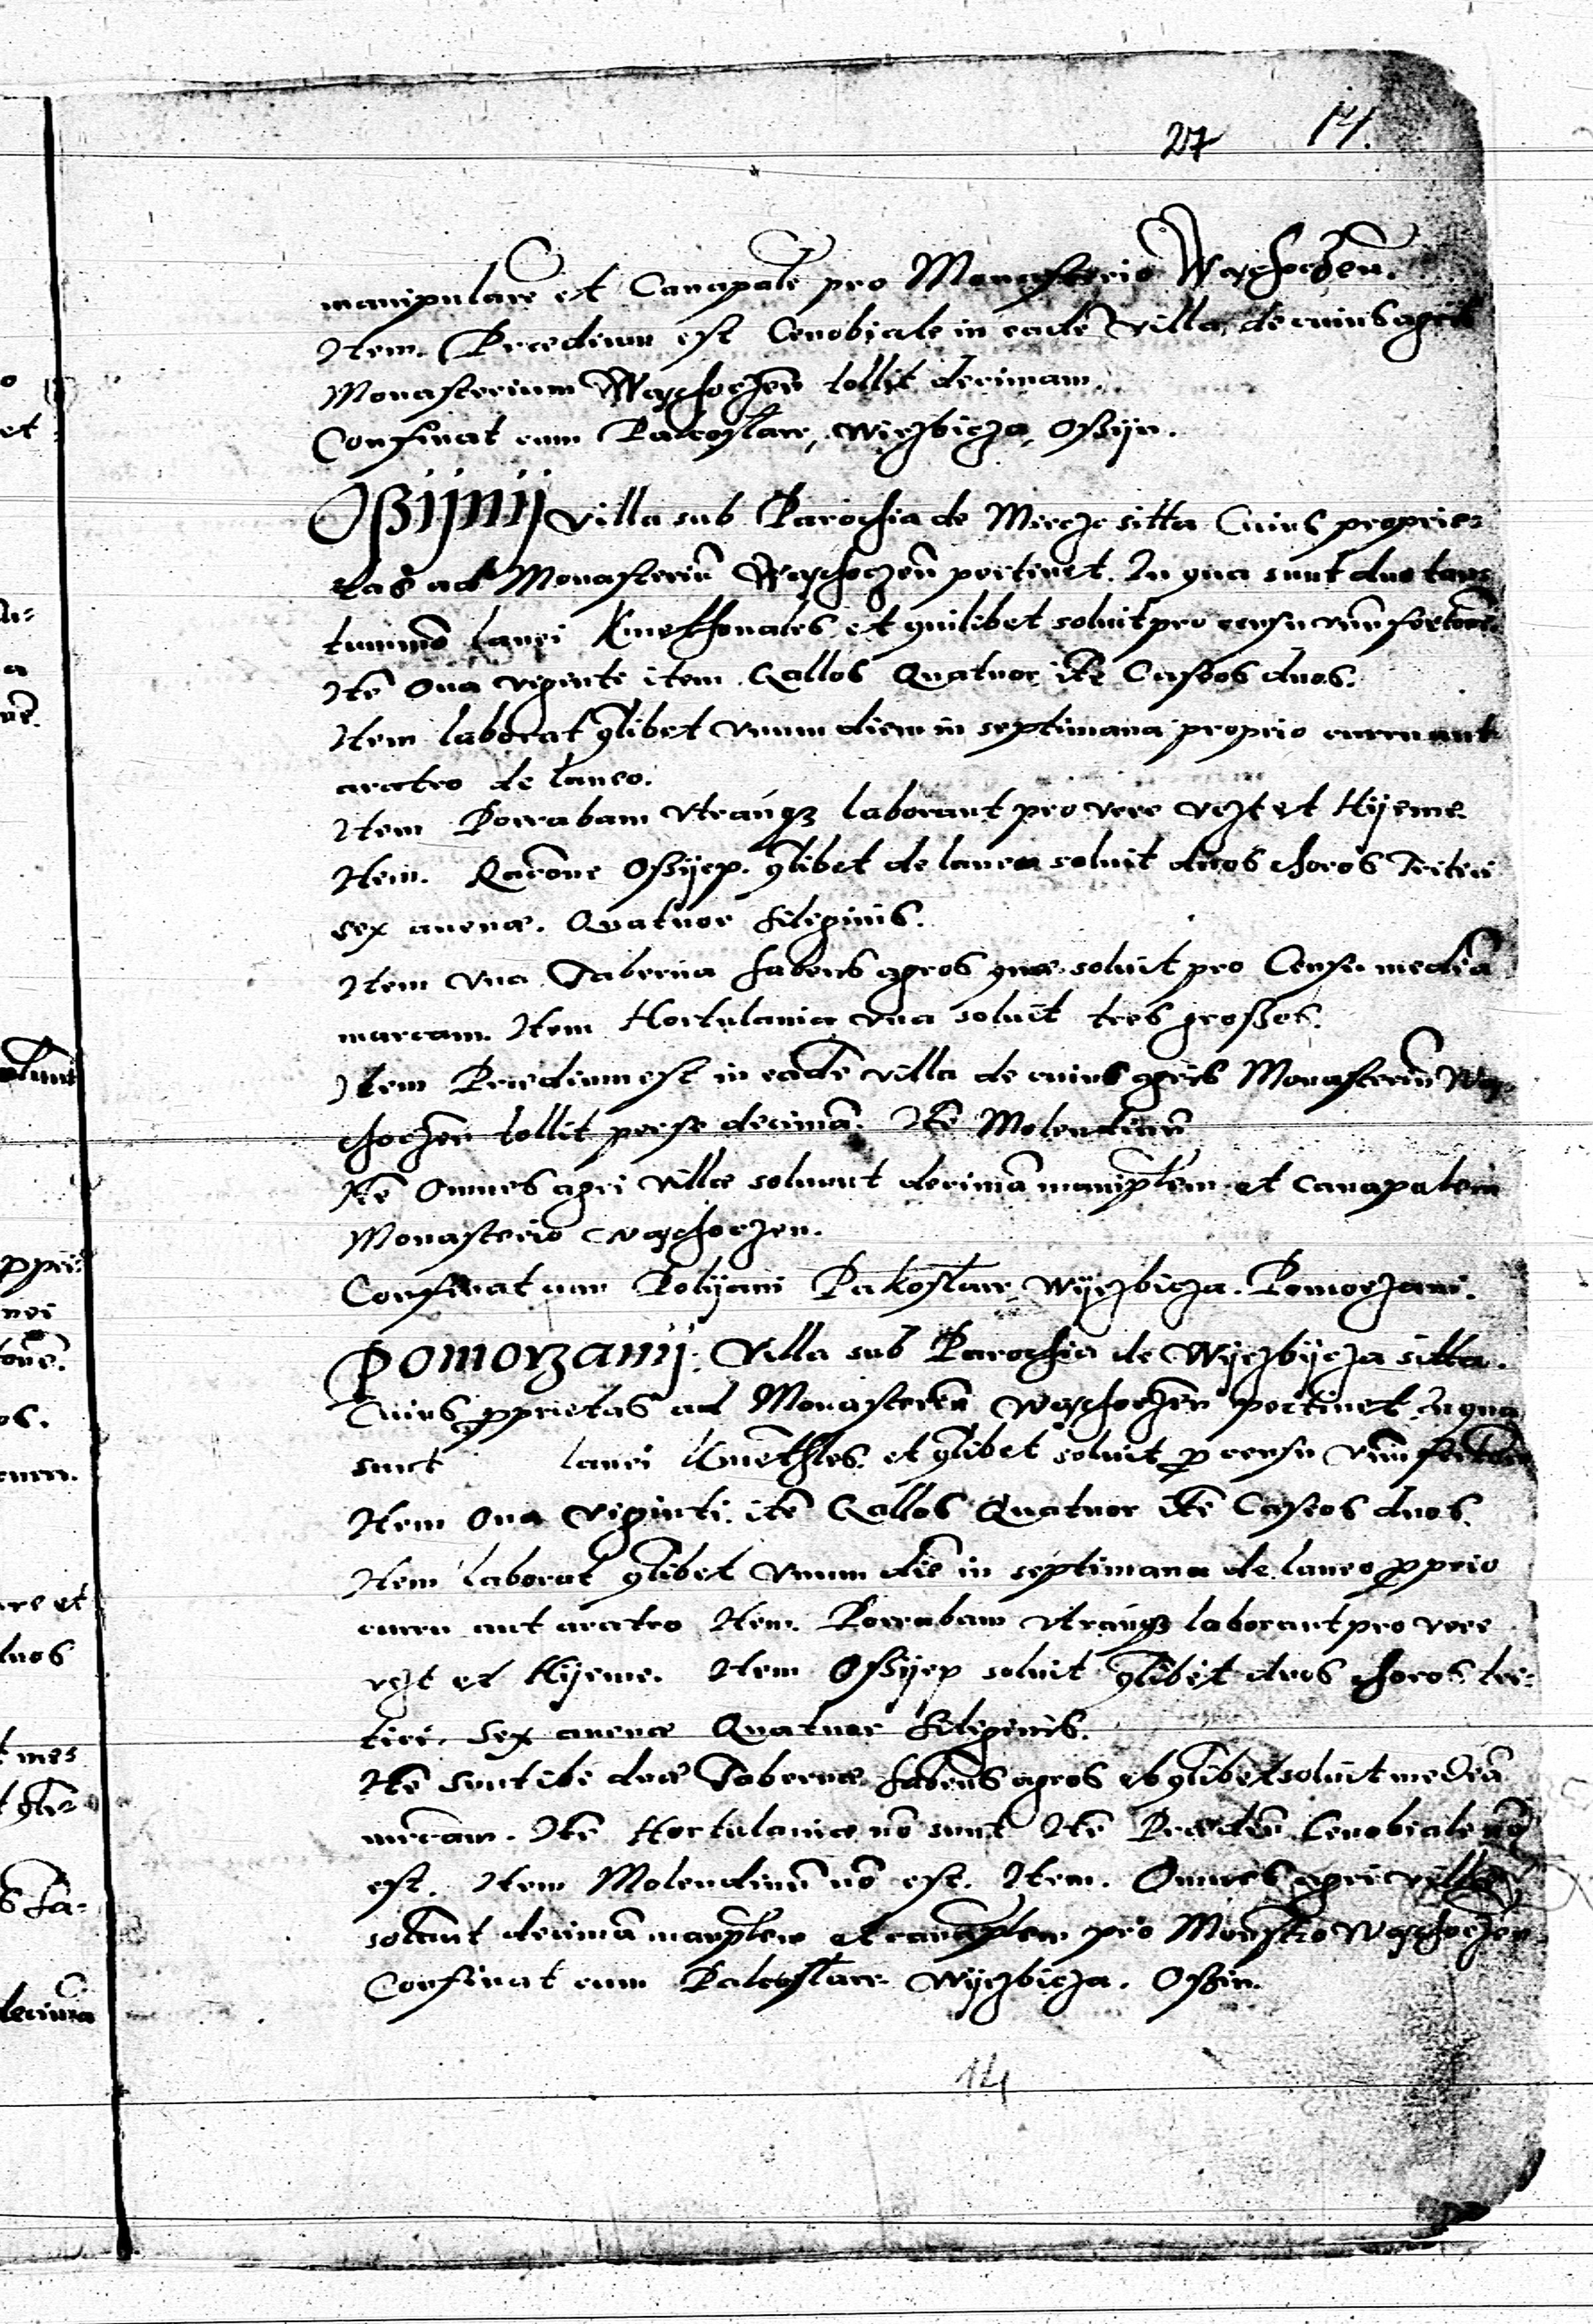 27 14.
manipularē et Canapalē pro Monasterio Wąchoczeñ.
Item. Prædium est Cenobiale in eadē villa, de cuius agris
Monasterium Wąchoczeñ tollit decimam.
Confinat cum Pakoslaw, Wierzbicza, Ossijn.
Ossijnij villa sub Parochia de Mircze sitta Cuius proprie-
tas ad Monasteriū Wąchoczeñ pertinet. In qua sunt duo tan-
tummō lanei Kmethonales, et quilibet soluit pro censu vnū fertonē
Itē Oua viginti item Gallos Quatuor itē Caseos duos.
Item laborat q̄libet vnum diem in septimana proprio curru aut
aratro de laneo.
Item Powabam vtranq̨ laborant pro vere vczt et Hijeme.
Item. Racōne Ossijep. q̄libet de laneo soluit duos choros Tritici
sex auenæ. Quatuor siliginis.
Item vna Taberna habens agros quæ soluit pro Censu mediā
marcam. Item Hortulania vna soluit tres grossos.
Item Prædium est in eadē villa de cuius agris Monasteriū Wą-
choczeñ tollit per se decimā. Itē Molendinū
Itē Omnes agri villæ soluunt decimā manip̄lem et canapalem
Monasterio Wąchoczen.
Confinat cum Polijani Pakoslaw, Wijerzbicza. Pomorzani.
Pomorzanij: Villa sub Parochia de Wijerzbijcza sitta.
Cuius p̄prietas ad Monasteriū Wąchoczeñ pertinet. In qua
sunt lanei Kmethles. et q̄libet soluit p̄ censu vnū fertonē
Item Oua viginti. itē Gallos Quatuor itē Caseos duos.
Item laborat q̄libet vnum diē in septimana de laneo p̄prio
curru aut aratro Item. Powabam vtranq̨ laborant pro vere
vczt et Hijeme. Item Ossijep soluit q̄libet duos choros tri-
tici. Sex auenæ Quatuor siliginis.
Itē sunt ibi duæ Tabernæ habens agros et q̄libet soluit mediā
mrcam. Itē Hortulaniæ nō sunt Itē Prædiū Cenobiale nō
est. Item Molendinū nō est. Item. Omnes agri villæ
soluūt decimā manip̄lem et canap̄lem pro Monstrō Wąchoczen
Confinat cum Pakoslaw Wijerzbicza. Ossin.
14